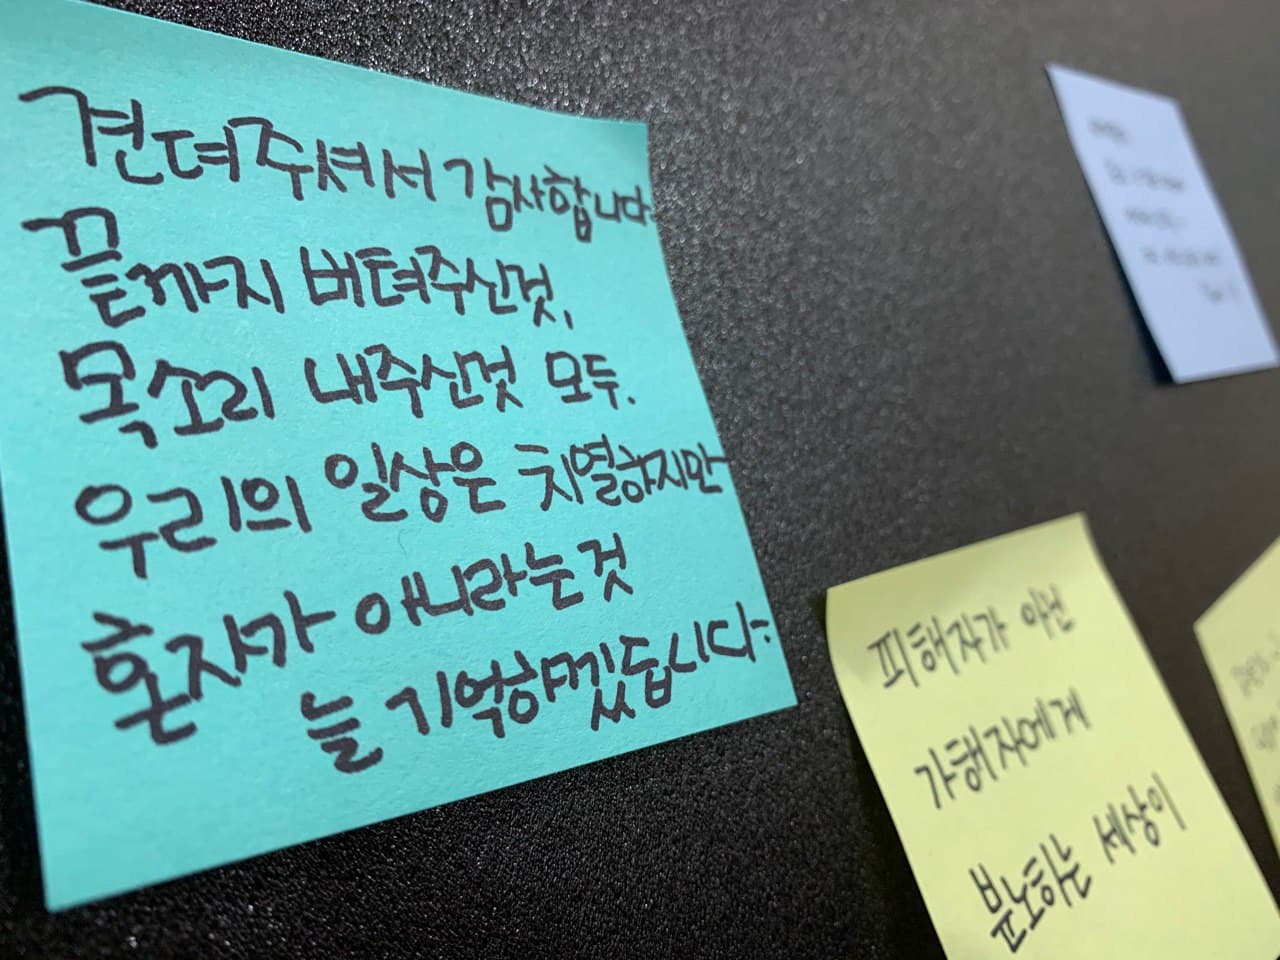 견뎌주셔서 감사합니다.
끝까지 버텨주신것,
목소리 내주신것 모두.
우리의 일상은 치열하지만
혼자가 아니라는것
늘 기억하겠습니다.
피해자가 아닌
가해자에게
분노하는 세상이